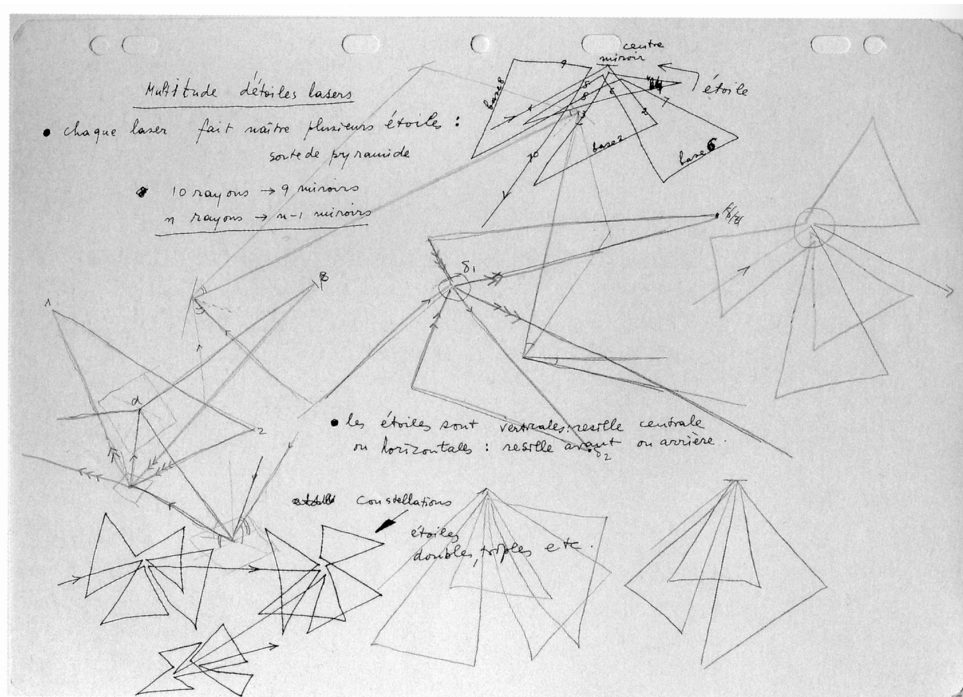 Multitude d'étoiles lasers
• chaque laser fait naître plusieurs étoiles :
sorte de pyramide
• 10 rayons → 9 miroirs
n rayons → n-1 miroirs
centre
miroir
étoile
base 8
base 2
base 6
9
8
6
7
10
1
δ1
8
1
α
2
• les étoiles sont verticales : resille centrale
ou horizontales : resille avant ou arrière.
δ2
constellations
étoiles
doubles, triples etc.